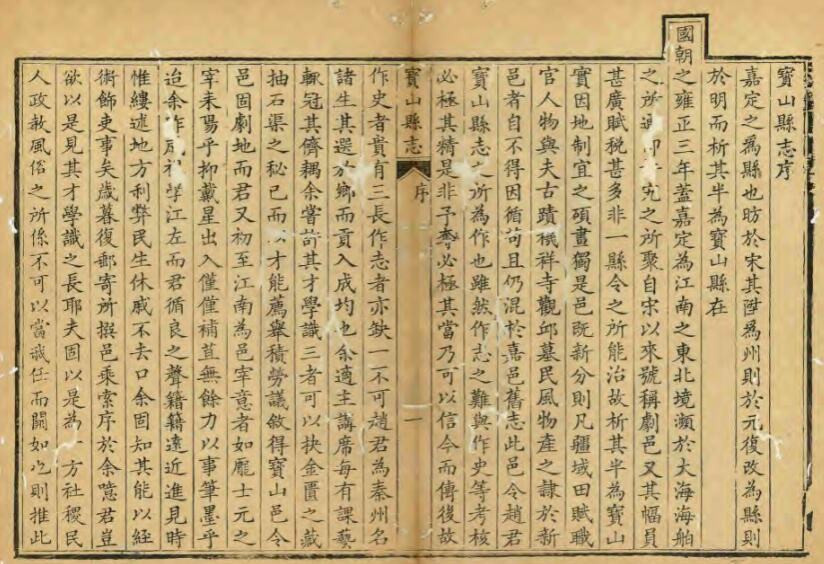 寶山縣志序
嘉定之為縣也昉於宋其陞為州則於元復改為縣則
於明而析其半為寶山縣在
國朝之雍正三年蓋嘉定為江南之東北境瀕於大海海舶
之所通宄之所聚自宋以來號稱劇邑又其幅員
甚廣賦稅甚多非一縣令之所能治故析其半為寶山
實因地制宜之碩畫獨是邑既新分則凡疆域田賦職
官人物與夫古蹟禨祥寺觀邱墓民風物產之隸於新
邑者自不得因循苟且仍混於嘉邑舊志此邑令趙君
寶山縣志之所為作也雖然作志之難與作史等考核
必極其精是非予奪必極其當乃可以信今而傳後故
寶山縣志 序 一
作史者貴有三長作志者亦缺一不可趙君為秦州名
諸生其選於鄉而貢入成均也余適主講席每有課藝
輒冠其儕耦余嘗許其才學識三者可以抉金匱之藏
抽石渠之秘已而以才能薦舉積勞議敘得寶山邑令
邑固劇地而君又初至江南為邑宰意者如龐士元之
宰耒陽乎抑戴星出入僅僅補苴無餘力以事筆墨乎
迨余昨歲視學江左而君循良之聲籍籍遠近進見時
惟縷述地方利弊民生休戚不去口余固知其能以經
術飾吏事矣歲暮復郵寄所撰邑乘索序於余噫君豈
欲以是見其才學識之長耶夫固以是為一方社稷民
人政教風俗之所係不可以當任而闕如也則推此